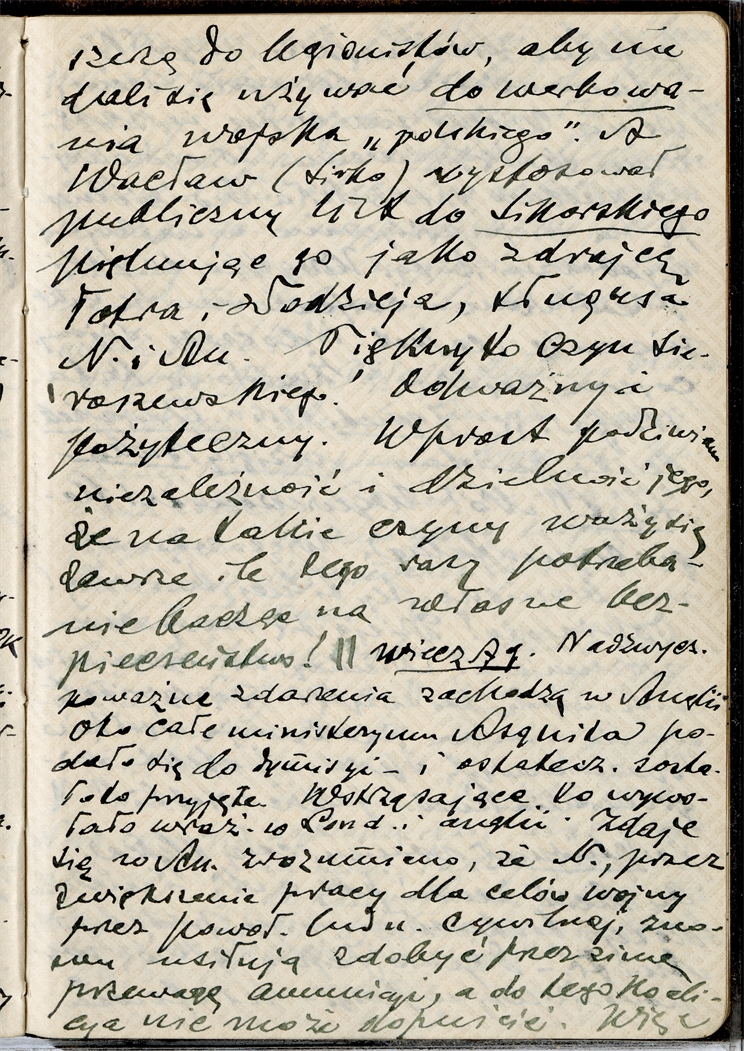 szczą do legionistów, aby nie
dali się używać do werbowa-
nia wojska „polskiego". A
Wacław (Sirko) wystosował
publiczny list do Sikorskiego
piętnując go jako zdrajcę,
łotra i złodzieja, sługusa
N. i Au. Piękny to czyn Sie-
roszewskiego! Odważny i
pożyteczny. Wprost podziwiam
niezależność i dzielność jego,
że na takie czyny waży się
zawsze ile tego razy potrzeba-
nie bacząc na własne bez-
pieczeństwo! || wiecz. Nadzwycz.
poważne zdarzenia zachodzą w Anglii
Oto całe ministeryum Asquita po-
dało się do dymisyi – i ostatecz. zosta-
ło to przyjęte. Wstrząsające to wywo-
łało wraż. w Lond. i anglii. Zdaje
się w An. zrozumiano, że N., przez
zwiększenie pracy dla celów wojny
przez powoł. ludn. cywilnej, zno-
wu usiłują zdobyć przez zimę
przewagę amunicyi, a do tego koali-
cya nie może dopuścić. Więc